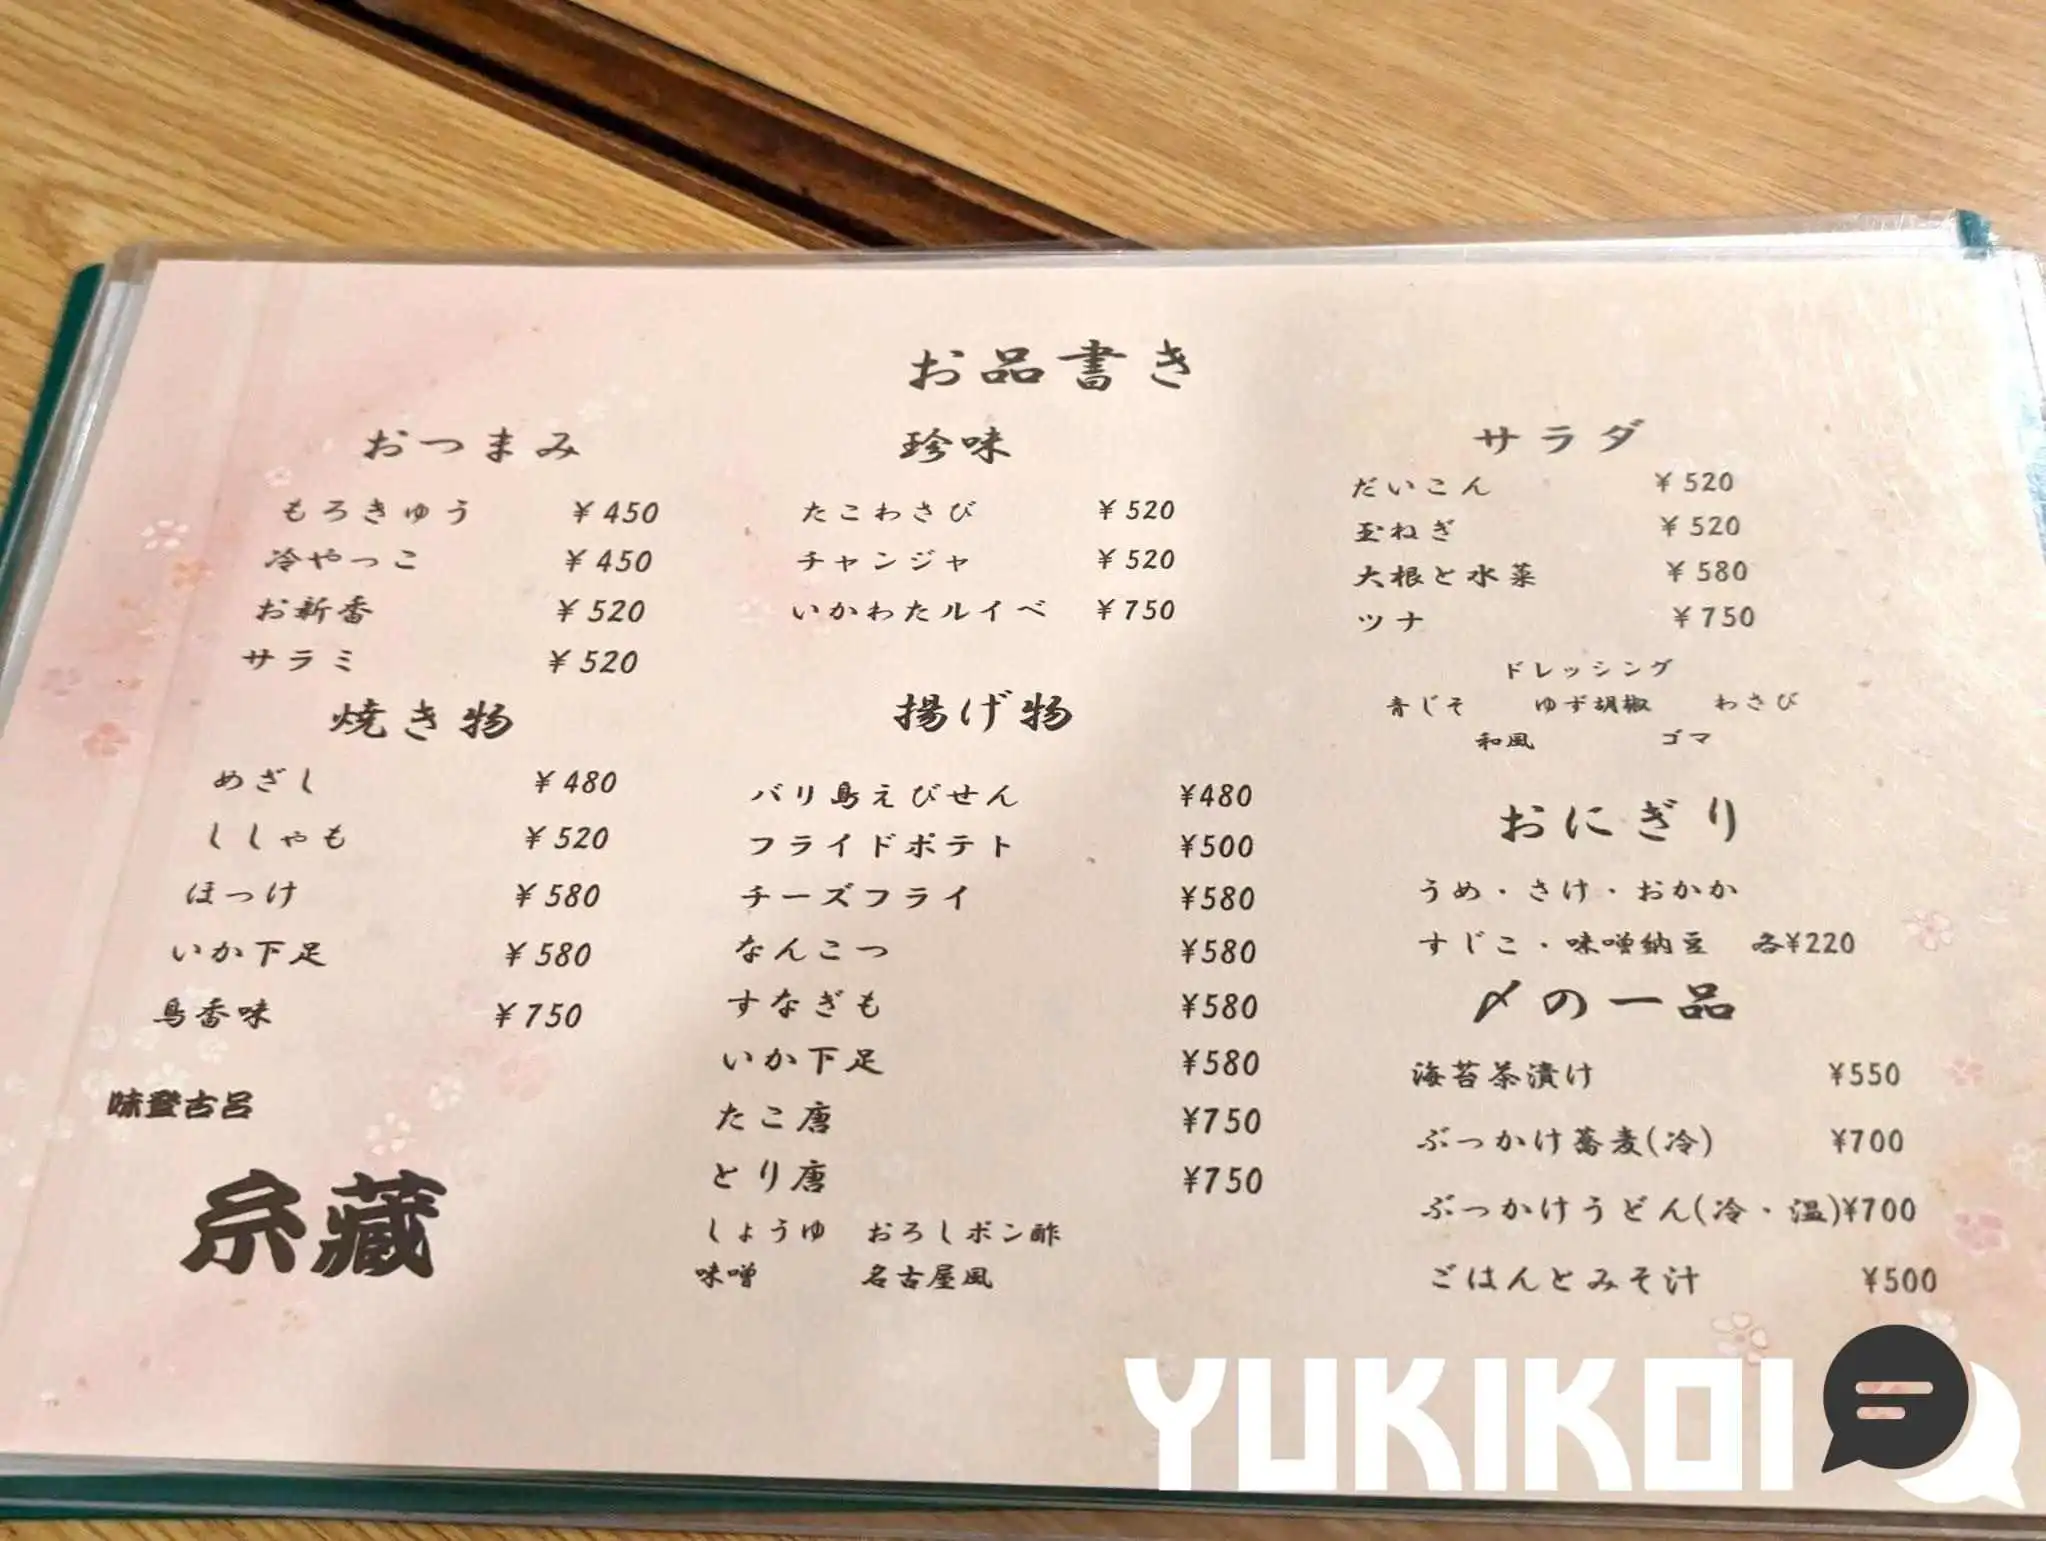 お品書き
おつまみ
もろきゅう ¥450
冷やっこ ¥450
お新香 ¥520
サラミ ¥520
焼き物
めざし ¥480
ししゃも ¥520
ほっけ ¥580
いか下足 ¥580
鳥香味 ¥750
味登古呂
糸蔵
珍味
たこわさび ¥520
チャンジャ ¥520
いかわたルイベ ¥750
揚げ物
バリ島えびせん ¥480
フライドポテト ¥500
チーズフライ ¥580
なんこつ ¥580
すなぎも ¥580
いか下足 ¥580
たこ唐 ¥750
とり唐 ¥750
しょうゆ おろしポン酢
味噌 名古屋風
サラダ
だいこん ¥520
玉ねぎ ¥520
大根と水菜 ¥580
ツナ ¥750
ドレッシング
青じそ ゆず胡椒 わさび
和風 ゴマ
おにぎり
うめ・さけ・おかか
すじこ・味噌納豆 各¥220
〆の一品
海苔茶漬け ¥550
ぶっかけ蕎麦(冷) ¥700
ぶっかけうどん(冷・温)¥700
ごはんとみそ汁 ¥500
YUKIKOI